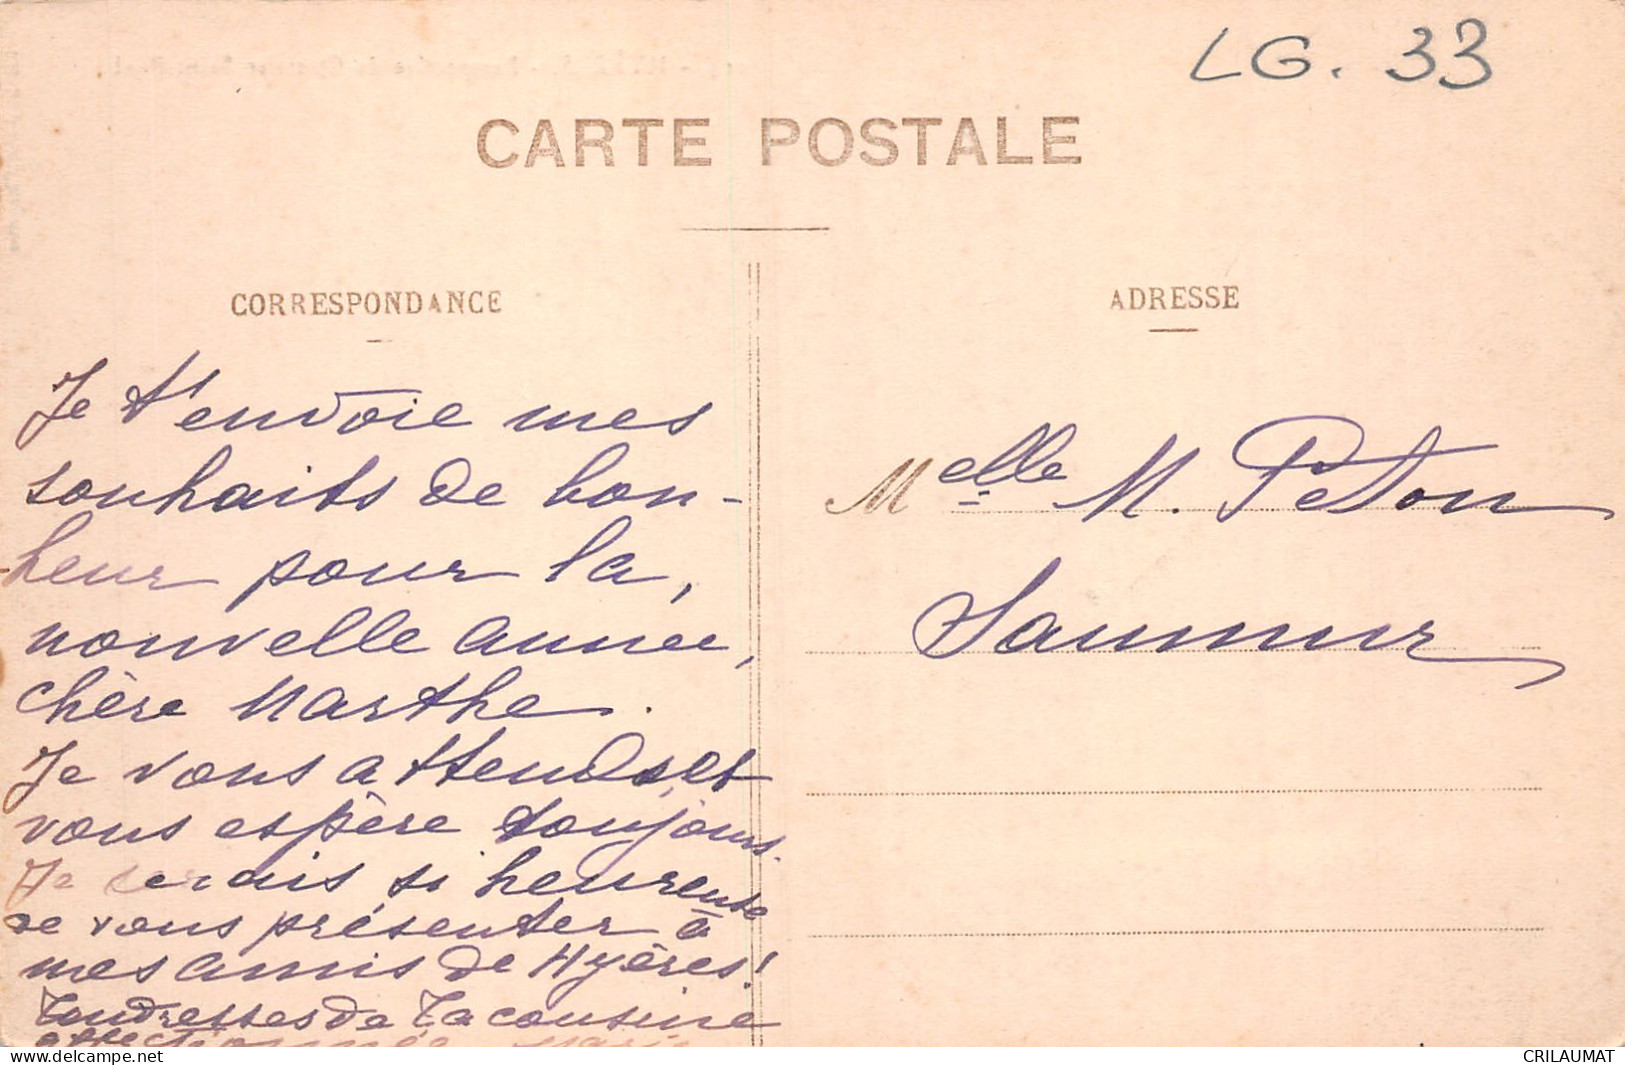 LG. 33
CARTE POSTALE
CORRESPONDANCE
Je t'envoie mes
souhaits de bon-
heur pour la,
nouvelle année,
chère Marthe.
Je vous attends, et
vous espère toujours.
Je serais si heureuse
de vous présenter à
mes amis de Hyères!
Tendresses de ta cousine
affectionnée Marie
ADRESSE
Melle M. Peton
Saumur
delcampe.net
CRILAUMAT